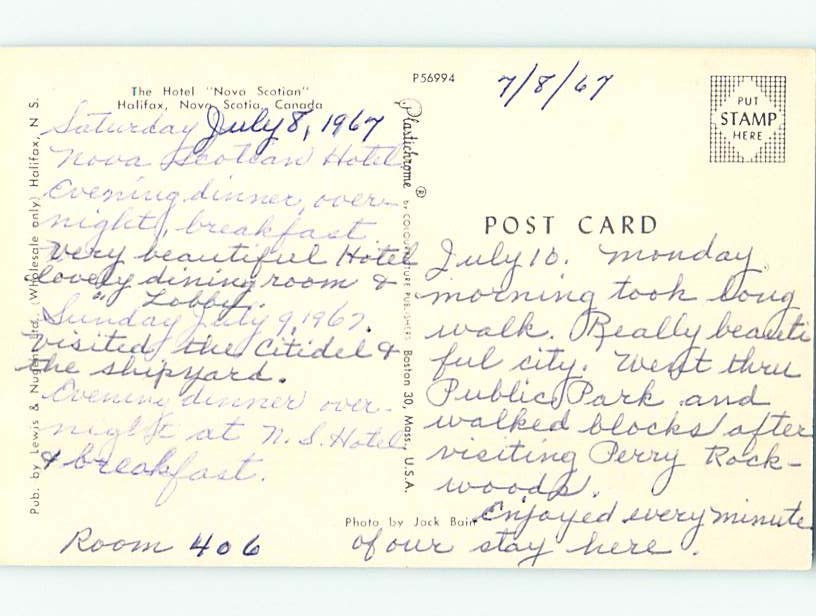 The Hotel "Nova Scotian"
Halifax, Nova Scotia, Canada
Saturday July 8, 1967
Nova Scotian Hotel
Evening dinner, over-
night, breakfast
Very beautiful Hotel
lovely dining room &
" Lobby.
Sunday July 9, 1967.
Visited the Citidel &
the shipyard.
Evening dinner over-
night at N.S. Hotel
& breakfast.
Room 406
Pub. by Lewis & Nugent Ltd., (Wholesale only) Halifax, N. S.
P56994
Plastichrome ® by COLOURPICTURE PUBLISHERS Boston 30, Mass., U.S.A.
7/8/67
PUT
STAMP
HERE
POST CARD
July 10. Monday
morning took long
walk. Really beauti
ful city. Went thru
Public Park and
walked blocks after
visiting Perry Rock-
woods.
Photo by Jack Bain
Enjoyed every minute
of our stay here.